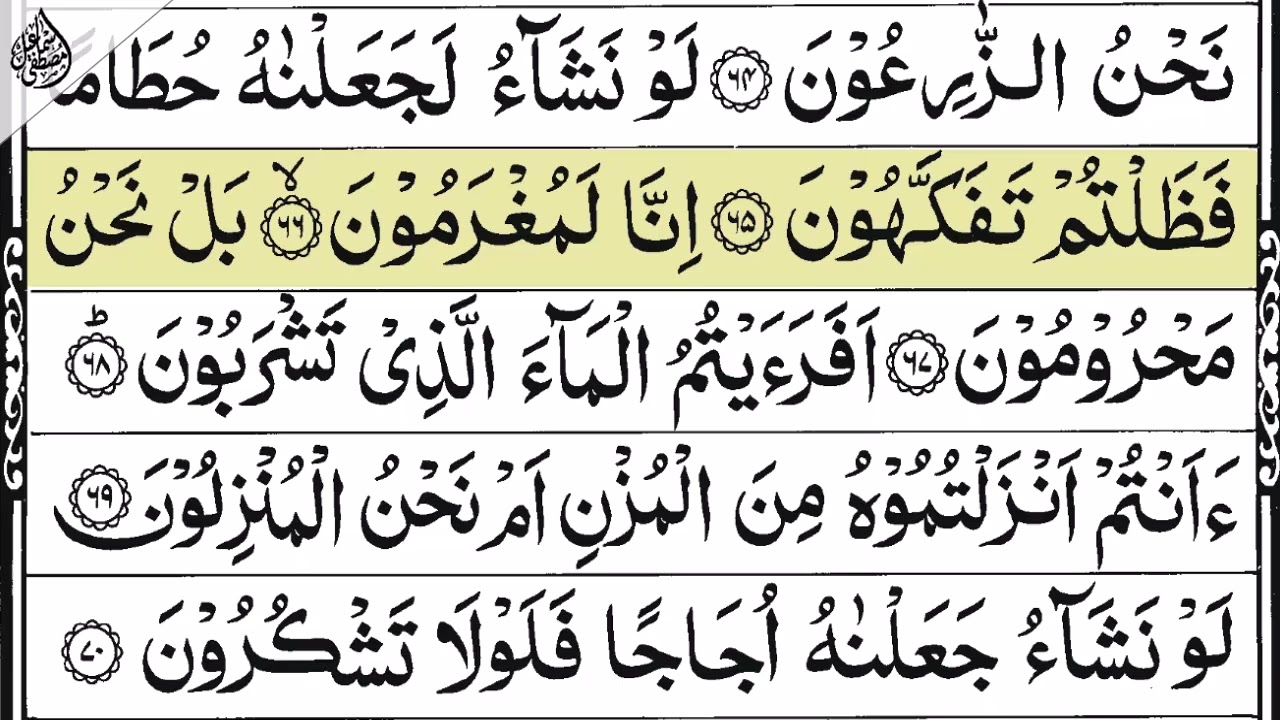 نَحْنُ الزّٰرِعُوْنَ ۶۴ لَوْ نَشَآءُ لَجَعَلْنٰهُ حُطَامًا
فَظَلْتُمْ تَفَكَّهُوْنَ ۶۵ اِنَّا لَمُغْرَمُوْنَ ۶۶ۙ بَلْ نَحْنُ
مَحْرُوْمُوْنَ ۶۷ اَفَرَءَيْتُمُ الْمَآءَ الَّذِيْ تَشْرَبُوْنَ ۶۸ؕ
ءَاَنْتُمْ اَنْزَلْتُمُوْهُ مِنَ الْمُزْنِ اَمْ نَحْنُ الْمُنْزِلُوْنَ ۶۹
لَوْ نَشَآءُ جَعَلْنٰهُ اُجَاجًا فَلَوْلَا تَشْكُرُوْنَ ۷۰